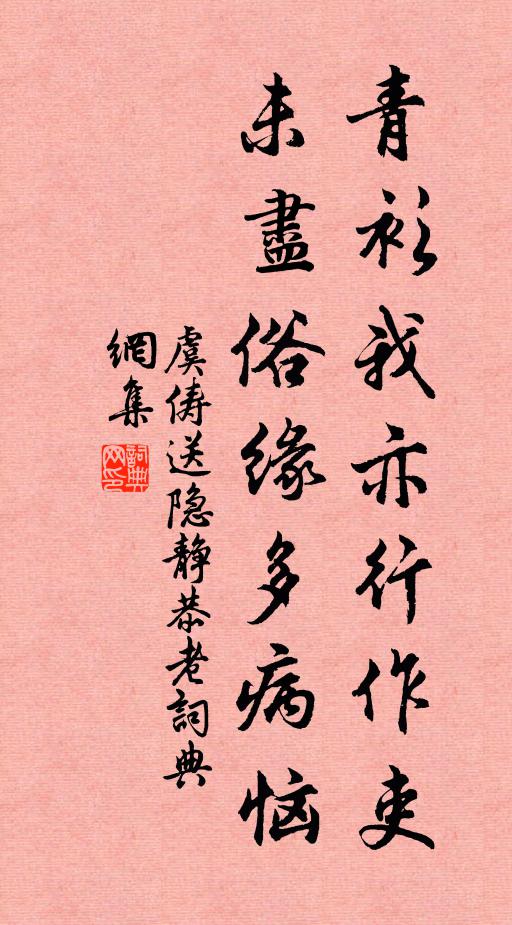 青衫我亦行作吏
未盡俗緣多病恼
虞俦送隐静恭老詞典
網集
詞典網印